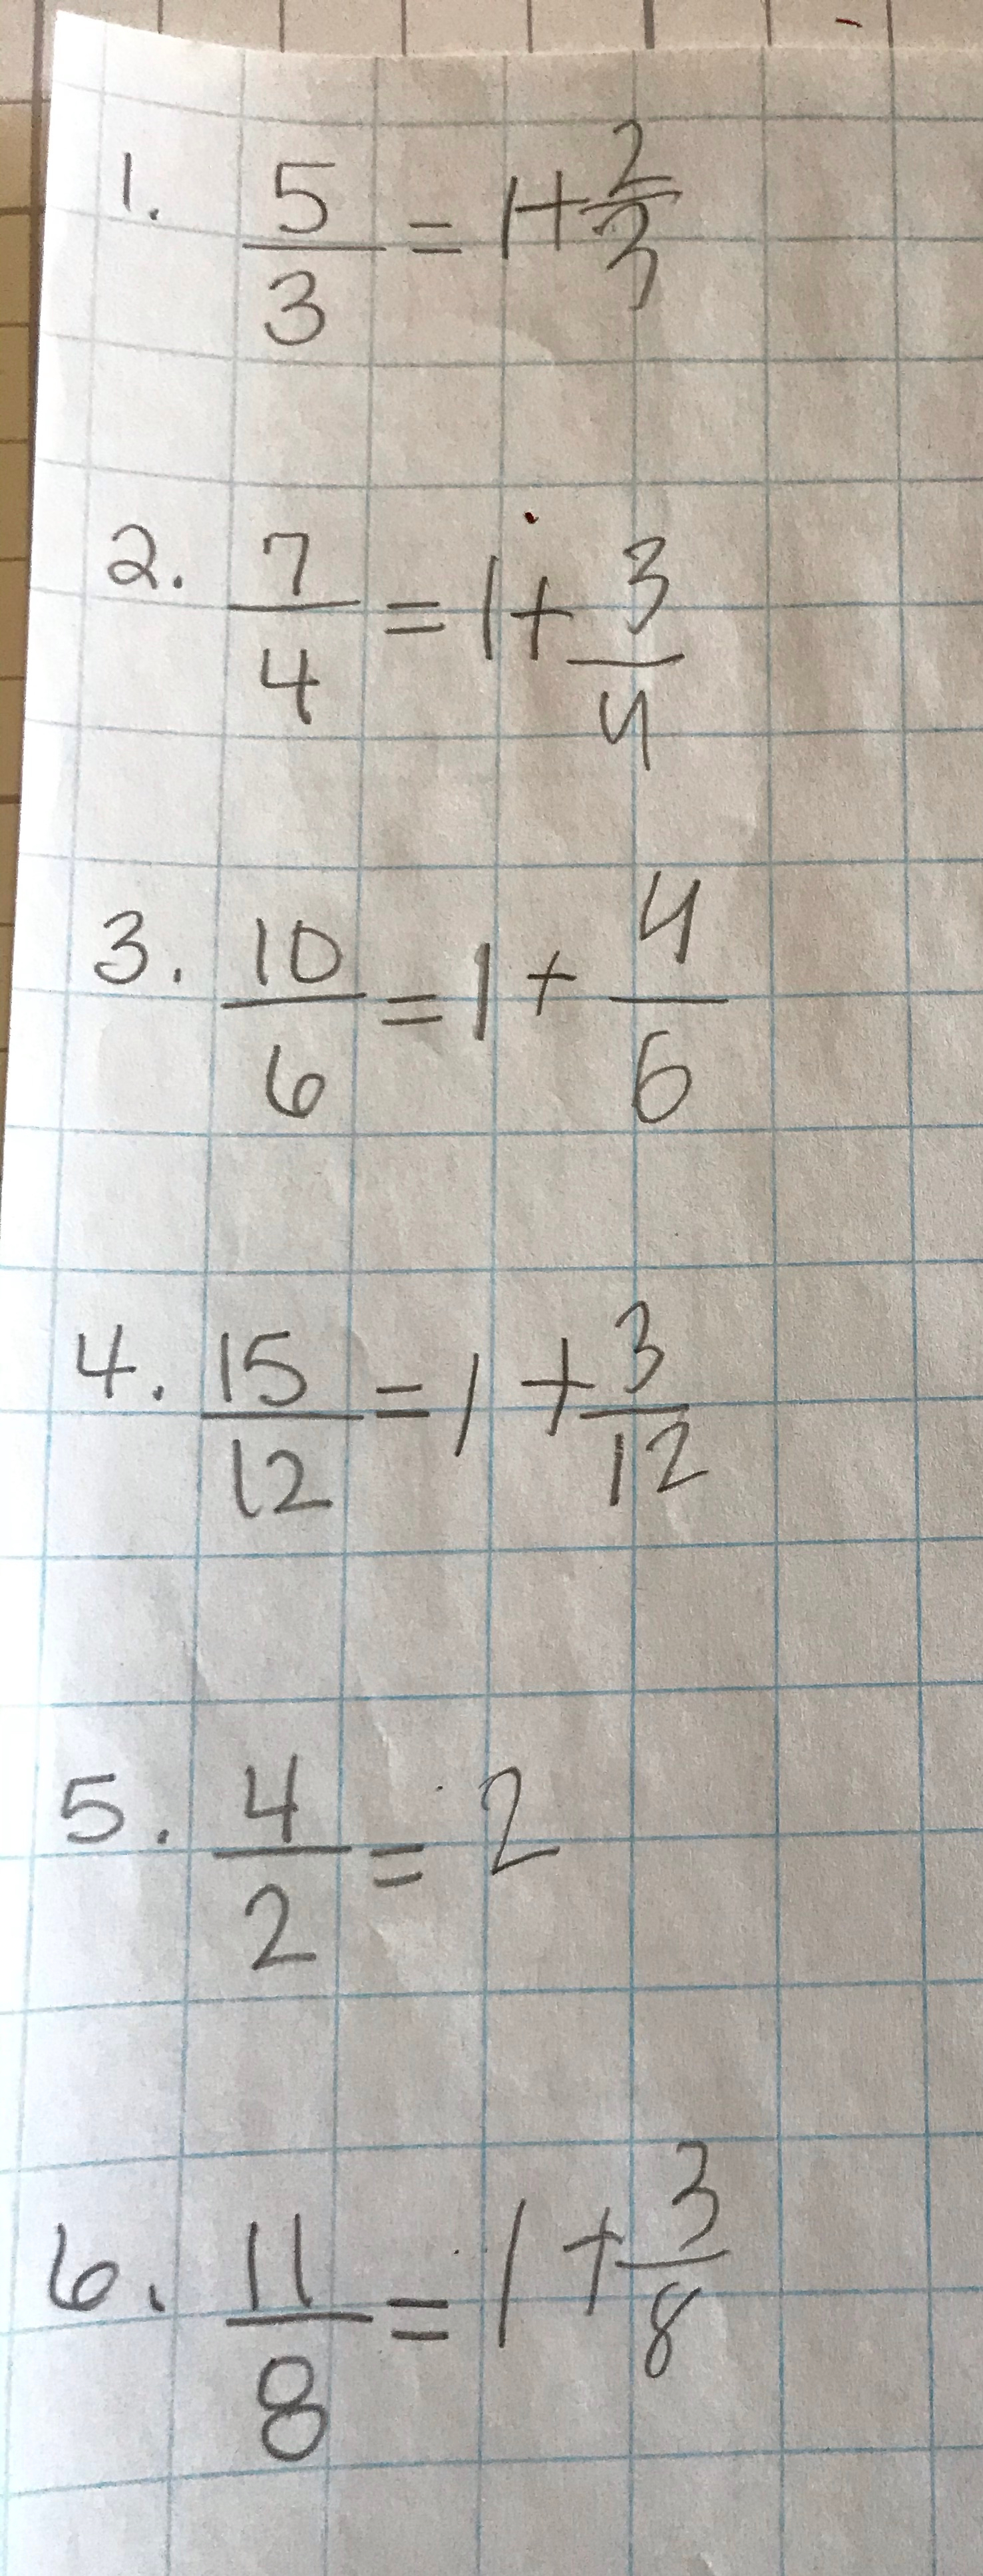 1. 5/3 = 1 + 2/3
2. 7/4 = 1 + 3/4
3. 10/6 = 1 + 4/6
4. 15/12 = 1 + 3/12
5. 4/2 = 2
6. 11/8 = 1 + 3/8